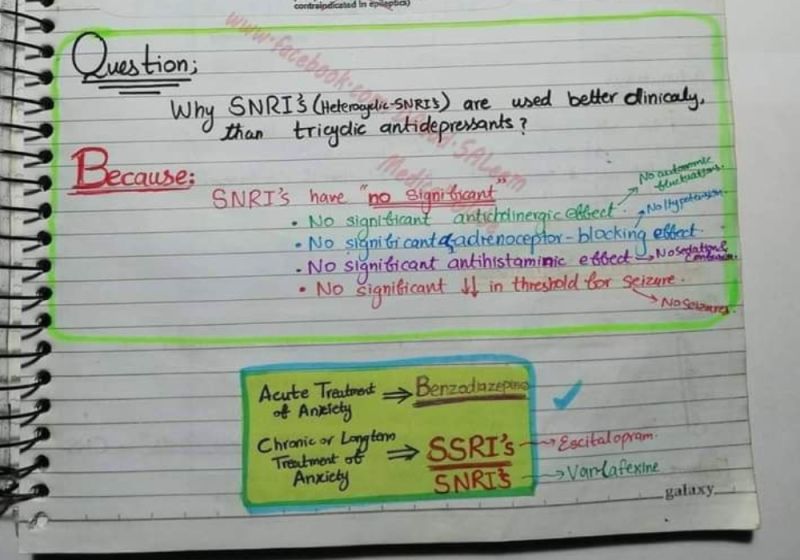 contraindicated in epileptics)
Question;
Why SNRI's (Heterocyclic-SNRI's) are used better clinicaly,
than tricyclic antidepressants?
Because:
SNRI's have "no significant"
• No significant anticholinergic effect → No autonomic fluctuations.
• No significant α adrenoceptor-blocking effect. → No Hypotension.
• No significant antihistaminic effect → No sedation &
• No significant ↓↓ in threshold for seizure. → No Seizures.
Acute Treatment of Anxiety ⇒ Benzodiazepine ✓
Chronic or Longterm Treatment of Anxiety ⇒ SSRI's → Escitalopram.
SNRI's → Vanlafexine
galaxy
www.facebook.com
SALeem
Medico